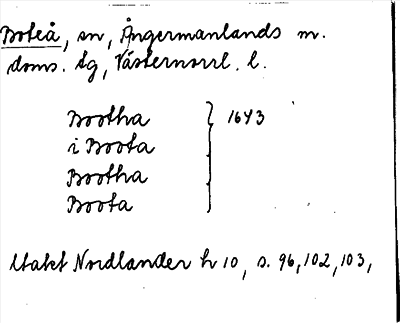 Boteå, sn, Ångermanlands m.
doms. tg, Västernorrl. l.
Bootha } 1643
i Boota
Bootha
Boota
Utakt Nordlander h 10, s. 96, 102, 103,